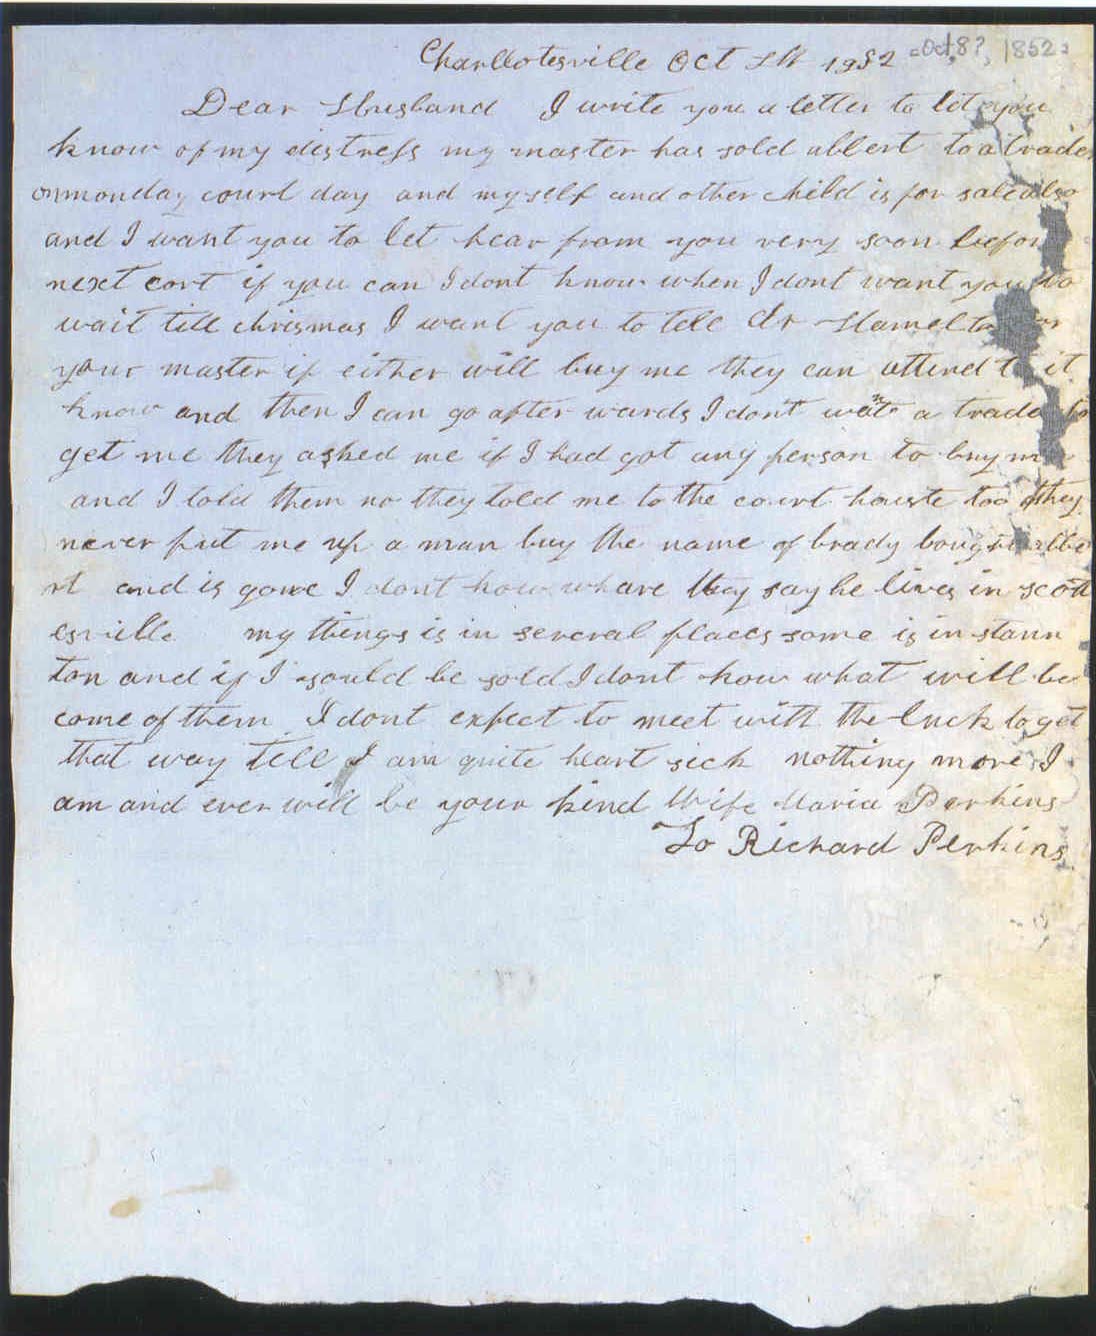 Charllotesville Oct 8th 1952 =Oct, 8?, 1852=
Dear Husband I write you a letter to let you
know of my distress my master has sold albert to a trade
on monday court day and myself and other child is for sale also
and I want you to let hear from you very soon before
next cort if you can I dont know when I dont want you to
wait till chrismas I want you to tell dr Hamelton or
your master if either will buy me they can attend to it
know and then I can go after wards I dont want a trader to
get me they asked me if I had got any person to buy me
and I told them no they told me to the court houste too they
never put me up a man buy the name of brady bought albe
rt and is gone I dont know whare they say he lives in scott
esville my things is in several places some is in staun
ton and if I sould be sold I dont know what will be
come of them I dont expect to meet with the luck to get
that way till I am quite heart sick nothing more I
am and ever will be your kind Wife Maria Perkins
To Richard Perkins